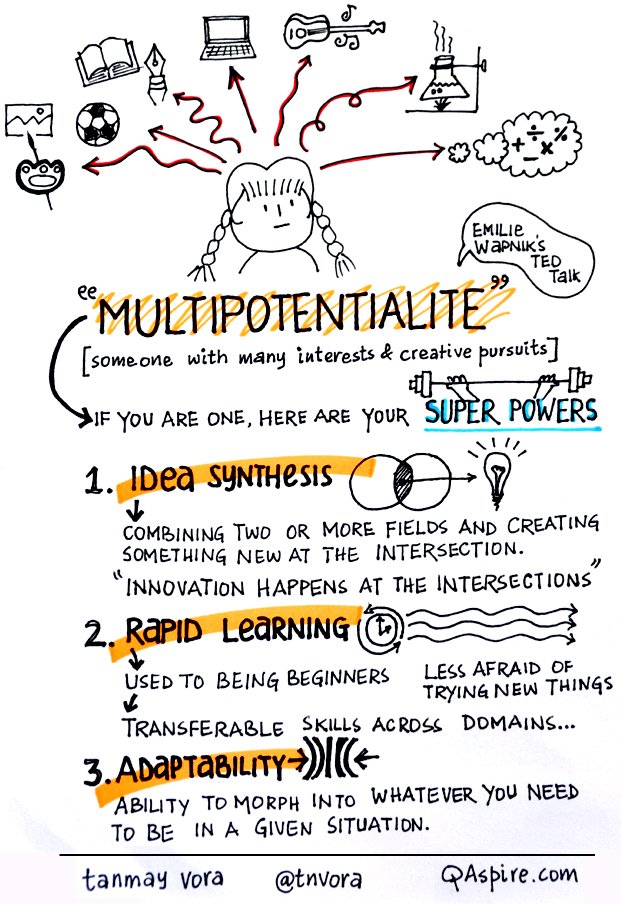 EMILIE
WAPNIK'S
TED
TALK
"MULTIPOTENTIALITE"
[someone with many interests & creative pursuits]
IF YOU ARE ONE, HERE ARE YOUR SUPER POWERS
1. IDEA SYNTHESIS
COMBINING TWO OR MORE FIELDS AND CREATING
SOMETHING NEW AT THE INTERSECTION.
"INNOVATION HAPPENS AT THE INTERSECTIONS"
2. RAPID LEARNING
USED TO BEING BEGINNERS
LESS AFRAID OF
TRYING NEW THINGS
TRANSFERABLE SKILLS ACROSS DOMAINS...
3. ADAPTABILITY
ABILITY TO MORPH INTO WHATEVER YOU NEED
TO BE IN A GIVEN SITUATION.
tanmay vora @tnvora QAspire.com